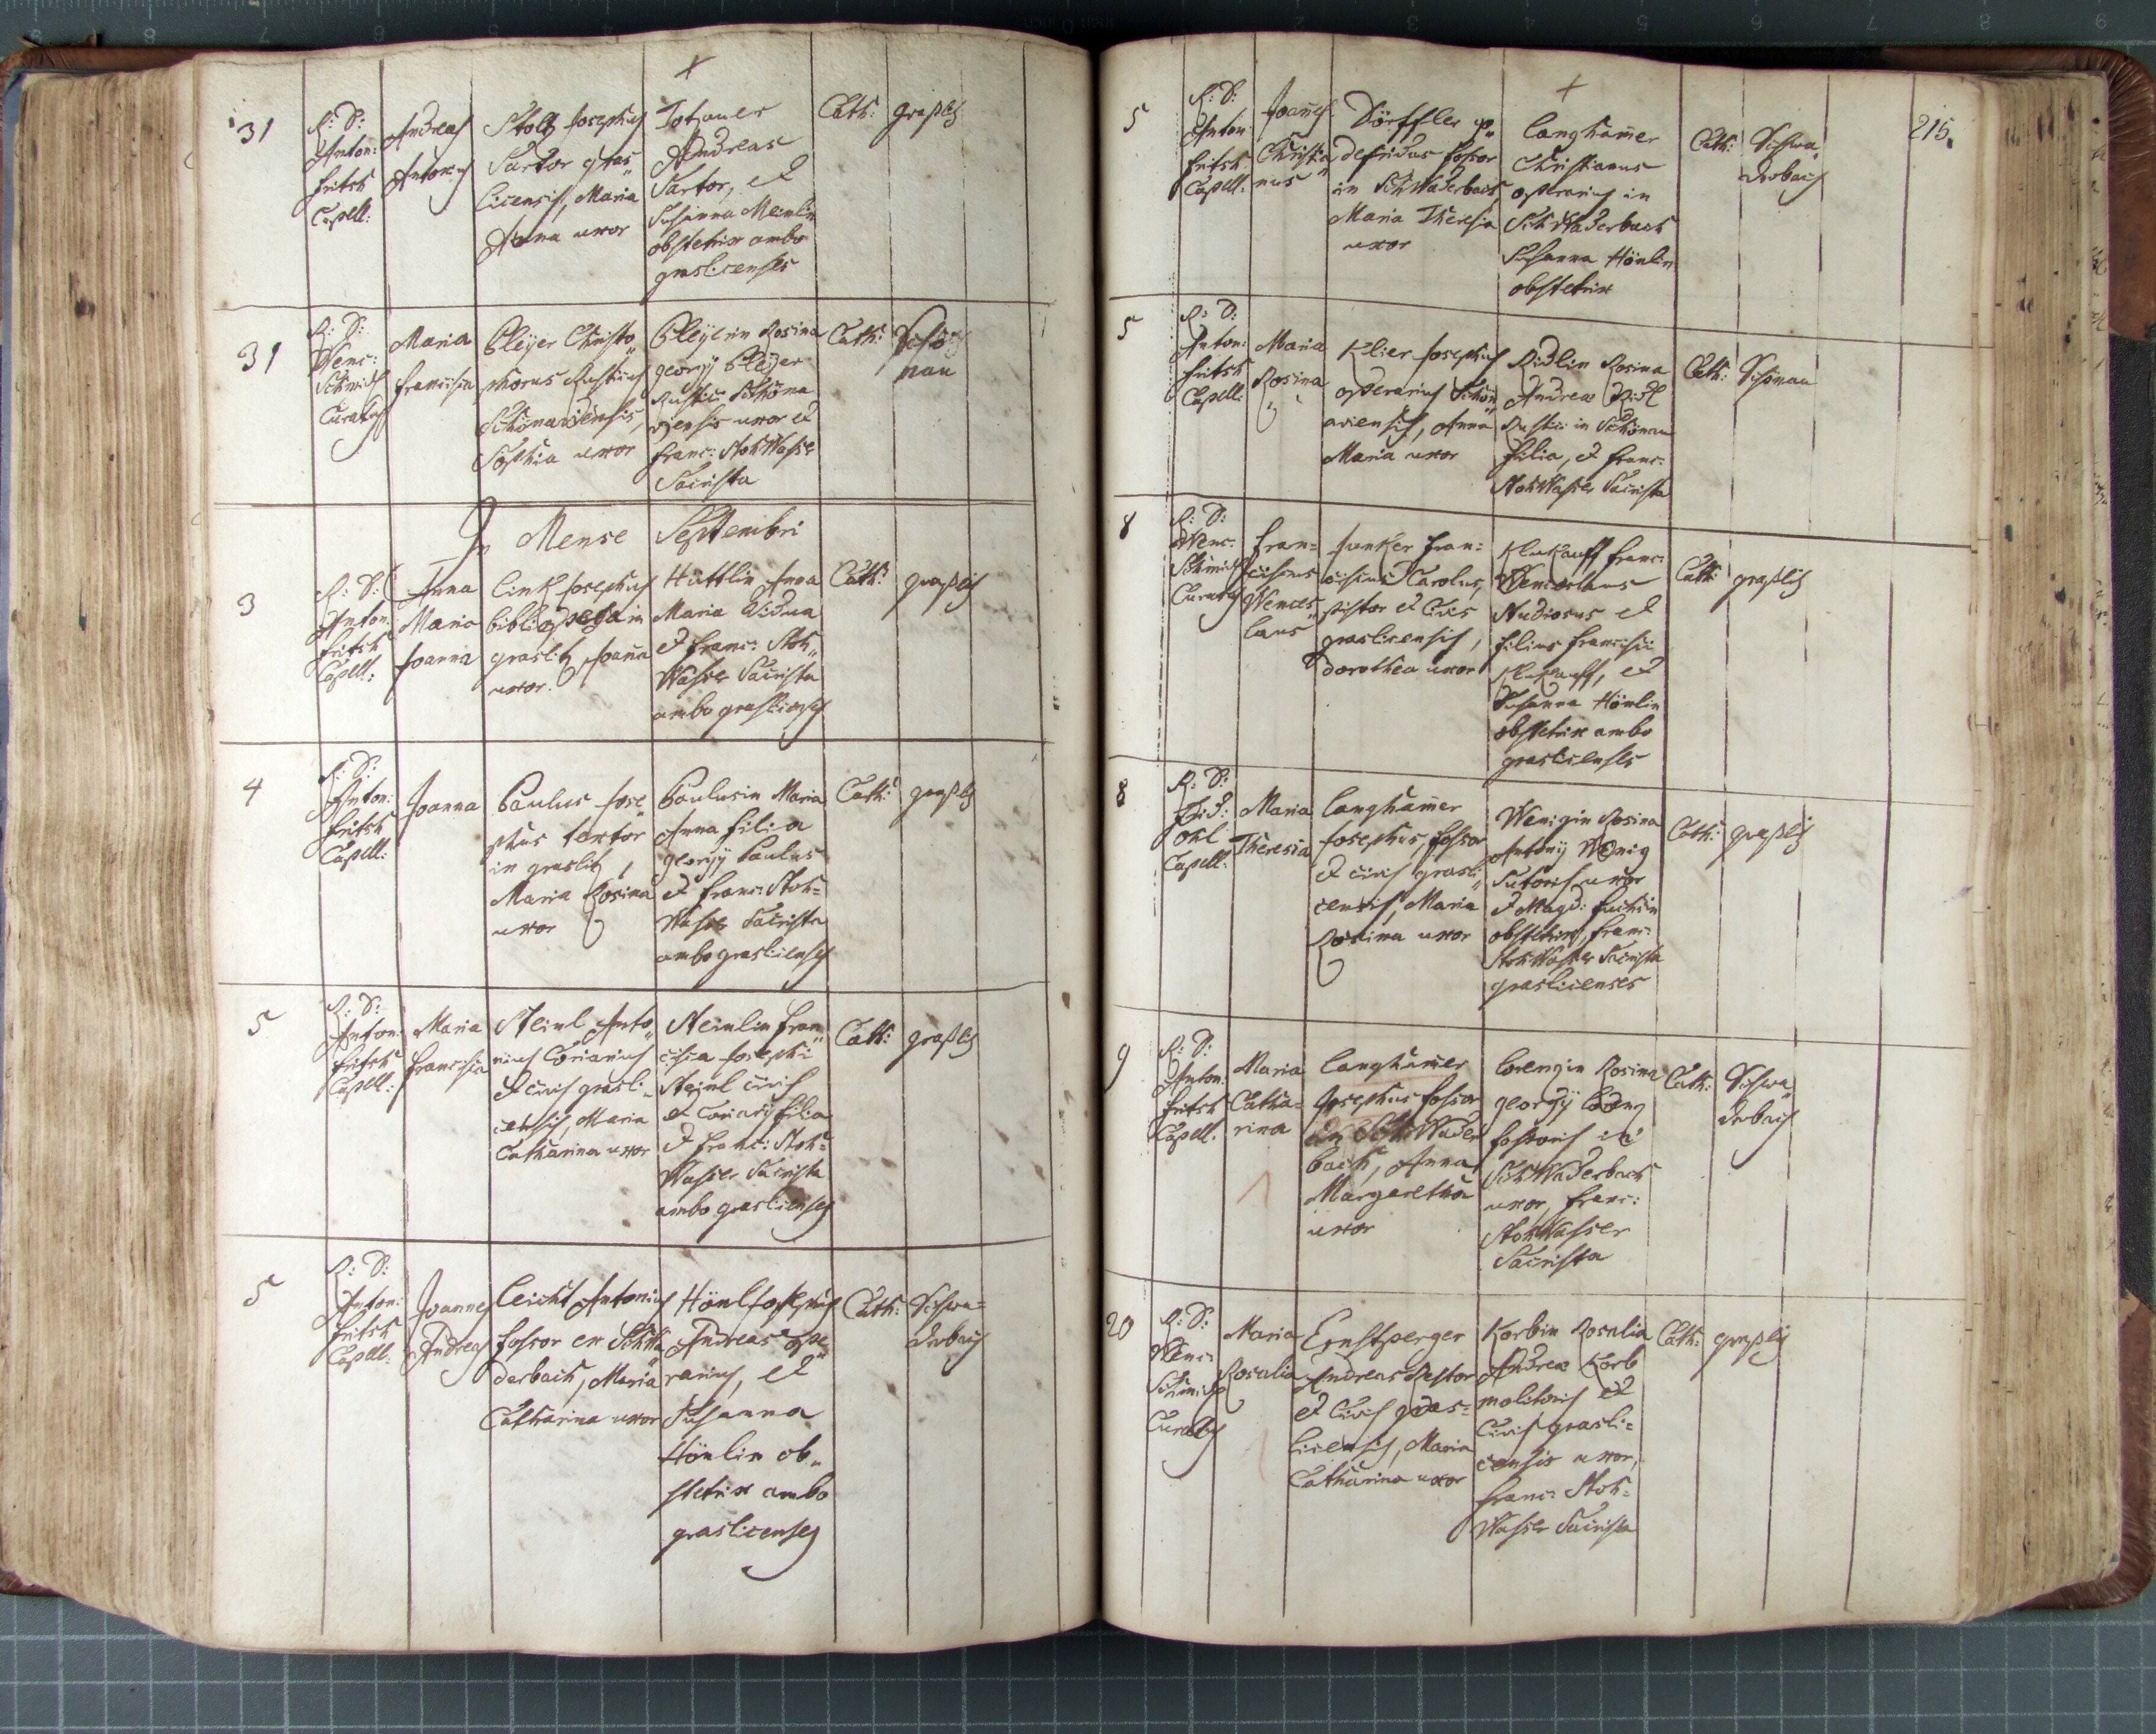 31
R: D:
Anton:
fritsch
Capell:
Andreas
Antonius
Stolz Josephus
Sartor gras„
licensis, Maria
Anna uxor
Andreas
Sartor, et
Susanna Meinlin
obstetrix ambo
graslicenses
Cath:
graßlitz
31
R: D:
Wenc:
Schmidt
Curatus
Maria
francisca
Bleyer Christo„
phorus Rusticus
Schönauiensis,
Sophia uxor
Bleyerin Rosina
georgÿ Bleyer
Rustici Schöna
viensis uxor et
franc: StohWasser
Sacrista
Cath:
Schö
nau
In Mense Septembri
3
R: D:
Anton:
fritsch
Capell:
Anna
Maria
Joanna
Link Josephus
bibliopega in
graslitz Joanna
uxor.
Hüttlin Anna
Maria Vidua
et franc: Stoh„
Wasser Sacrista
ambo graslicenses
Cath:
graßlitz
4
R: D:
Anton:
fritsch
Capell:
Joanna
Paulus Jose„
phus textor
in graslitz,
Maria Rosina
uxor
Paulusin Maria
Anna filia
georgÿ Paulus
et franc: Stoh=
Wasser Sacrista
ambo graslicenses
Cath:
graßlitz
5
R: D:
Anton:
fritsch
Capell:
Maria
francisca
Steinl Anto„
nius Coriarius
et civis grasli=
censis, Maria
Catharina uxor
Steinlin fran„
cisca Josephi
Steinl civis
et Coriarÿ filia
et franc: Stoh=
Wasser Sacrista
ambo graslicenses
Cath:
graßlitz
5
R: D:
Anton:
fritsch
Capell:
Joannes
Andreas
Leicht Antonius
fossor ex Schwa„
derbach, Maria
Catharina uxor
Hönl Josephus
Andreas ope„
rarius, et
Susanna
Hönlin ob„
stetrix ambo
graslicenses
Cath:
Schwa=
derbach
215.
5
R: D:
Anton:
fritsch
Capell:
Joannes
Christia„
nus
Dörffler go„
defridus fossor
in Schwaderbach,
Maria Theresia
uxor
Langhamer
Christianus
operarius in
Schwaderbach
Susanna Hönlin
obstetrix
Cath:
Schwa„
derbach
5
R: D:
Anton:
fritsch
Capell:
Maria
Rosina
Klier Josephus
operarius Schön„
aviensis, Anna
Maria uxor
Ridlin Rosina
Andreæ Ridl
Rustici in Schönau
filia, et franc:
StohWasser Sacrista
Cath:
Schönau
8
R: D:
Wenc:
Schmidt
Curatus
fran=
ciscus
Wences„
laus
Junker fran=
ciscus Carolus,
pistor et Civis
graslicensis,
dorothea uxor
franc:
Wenceslaus
Studiosus et
filius francisci
et
Susanna Hönlin
obstetrix ambo
graslicenses
Cath:
graßlitz
8
R: D:
Capell:
Maria
Theresia
Langhamer
Josephus, fossor
et civis grasli„
censis, Maria
Rosina uxor
Wenigin Rosina
Antonÿ Wenig
Sutoris uxor
et Magd: fuchsin
obstetrix, franc:
StohWasser Sacrista
graslicenses
Cath:
graßlitz
9
R: D:
Anton:
fritsch
Capell.
Maria
Catha=
rina
Langhamer
Josephus fossor
ex Schwader
bach, Anna
Margaretha
uxor
Lorenzin Rosina
georgÿ Lorenz
fossoris in
Schwaderbach
uxor, franc:
StohWasser
Sacrista
Cath:
Schwa„
derbach
20
R: D:
Wenc:
Schmidt
Curatus
Maria
Rosalia
Ernstperger
Andreas Restor
et Civis gras=
licensis, Maria
Catharina uxor
Korbin Rosalia
Andreæ Korb
molitoris et
Civis grasli=
censis uxor,
franc: Stoh=
Wasser Sacrista
Cath:
graßlitz